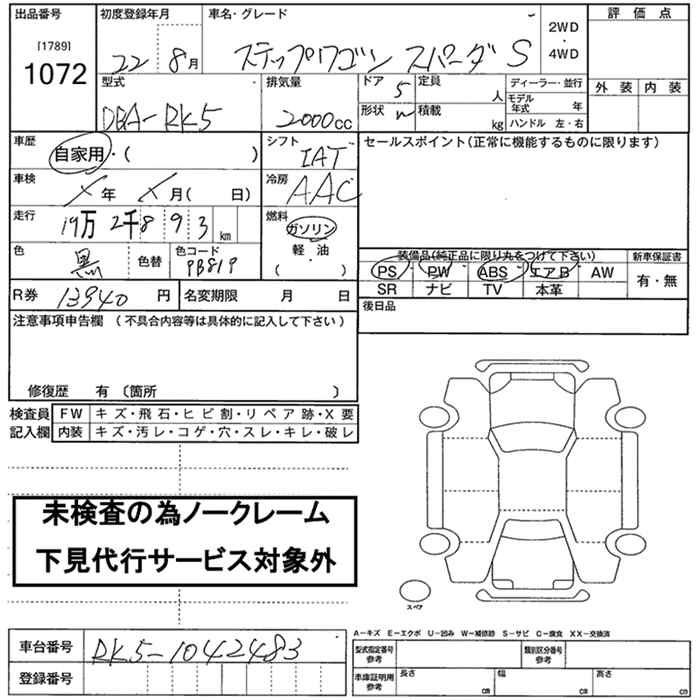 出品番号 初度登録年月 車名・グレード 評価点
[1789]
1072
22 8月 ステップワゴン スパーダ S 2WD・4WD
型式 排気量 ドア 5 定員 人 ディーラー・並行 外装 内装
モデル年式 年
DBA-RK5 2000cc 形状 W 積載 kg ハンドル 左・右
車歴 シフト セールスポイント(正常に機能するものに限ります)
自家用・( ) IAT
車検 冷房
X年 X月( 日) AAC
走行 燃料
19万 2千8 9 3 km ガソリン・軽・油
色 黒 色替 色コード PB81P ( ) 装備品(純正品に限り丸をつけて下さい) 新車保証書
PS PW ABS エアB AW 有・無
SR ナビ TV 本革
R券 13940 円 名変期限 月 日 後日品
注意事項申告欄 (不具合内容等は具体的に記入して下さい)
修復歴 有 〔箇所 〕
検査員 FW キズ・飛石・ヒビ割・リペア跡・X要
記入欄 内装 キズ・汚レ・コゲ・穴・スレ・キレ・破レ
未検査の為ノークレーム
下見代行サービス対象外
スペア
A-キズ E-エクボ U-凹み W-補修跡 S-サビ C-腐食 XX-交換済
車台番号 RK5-1042483 型式指定番号 参考 類別区分番号 参考
登録番号 車庫証明用 参考 長さ cm 幅 cm 高さ cm